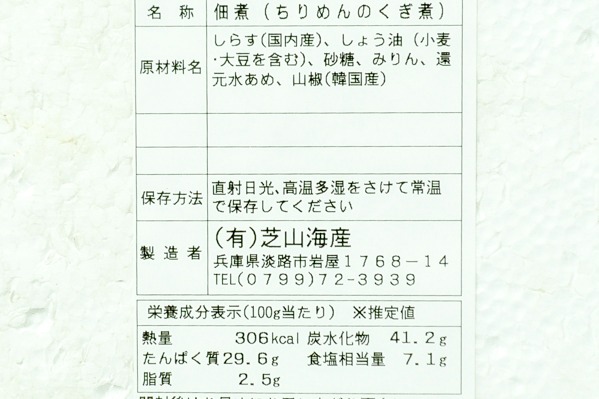 名 称 佃煮（ちりめんのくぎ煮）
原材料名 しらす(国内産)、しょう油（小麦
･大豆を含む)、砂糖、みりん、還
元水あめ、山椒(韓国産)
保存方法 直射日光、高温多湿をさけて常温
で保存してください
製造者 (有)芝山海産
兵庫県淡路市岩屋１７６８－１４
TEL(０７９９)７２-３９３９
栄養成分表示(100g当たり) ※推定値
熱量 306kcal 炭水化物 41.2g
たんぱく質 29.6g 食塩相当量 7.1g
脂質 2.5g